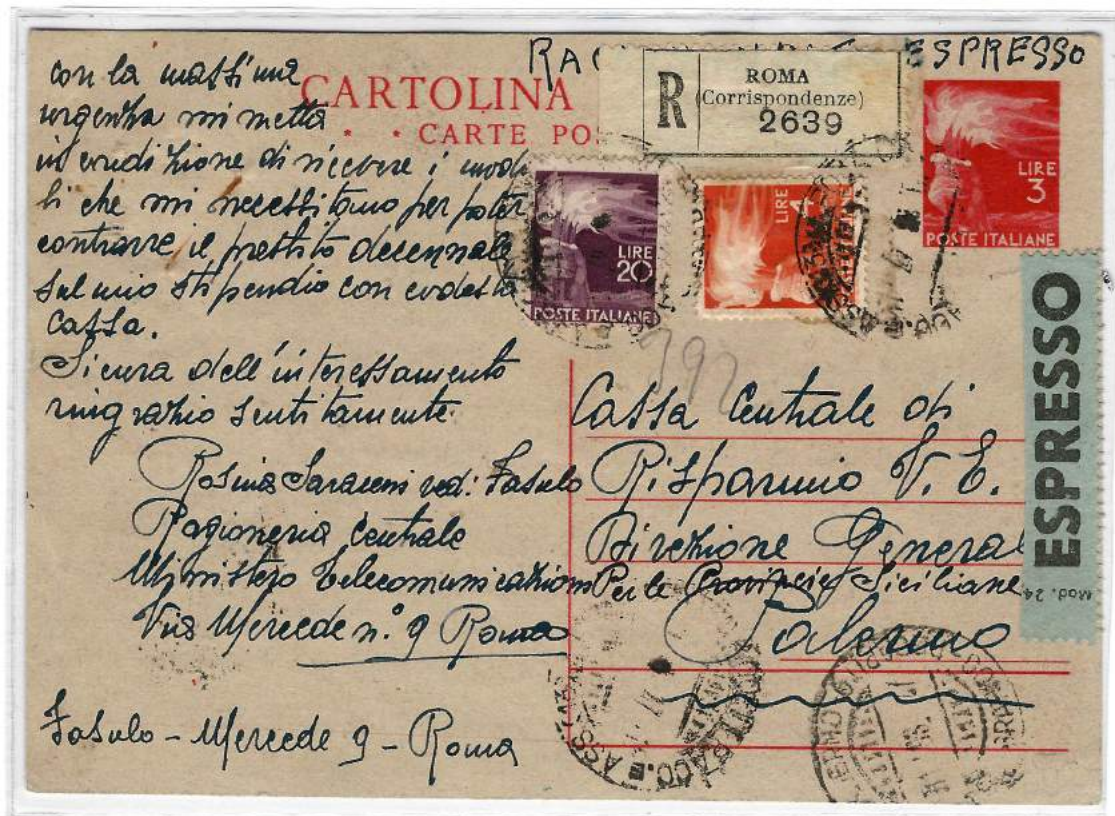 RAC ESPRESSO
CARTOLINA
CARTE POS
R
ROMA
(Corrispondenze)
2639
LIRE
3
POSTE ITALIANE
LIRE
20
POSTE ITALIANE
LIRE
4
ESPRESSO
Mod. 24
392
con la massima
urgenza mi metta
in condizione di ricevere i modu
li che mi necessitano per poter
contrarre il prestito decennale
sul mio stipendio con codesta
Cassa.
Sicura dell'interessamento
ringrazio sentitamente.
Rosina Saraceni ved: Fasulo
Ragioneria Centrale
Ministero Telecomunicazioni
Via Mercede n.° 9 Roma
Fasulo - Mercede 9 - Roma
Cassa Centrale di
Risparmio V. E.
Direzione General
Per le Provincie Siciliane
Palermo